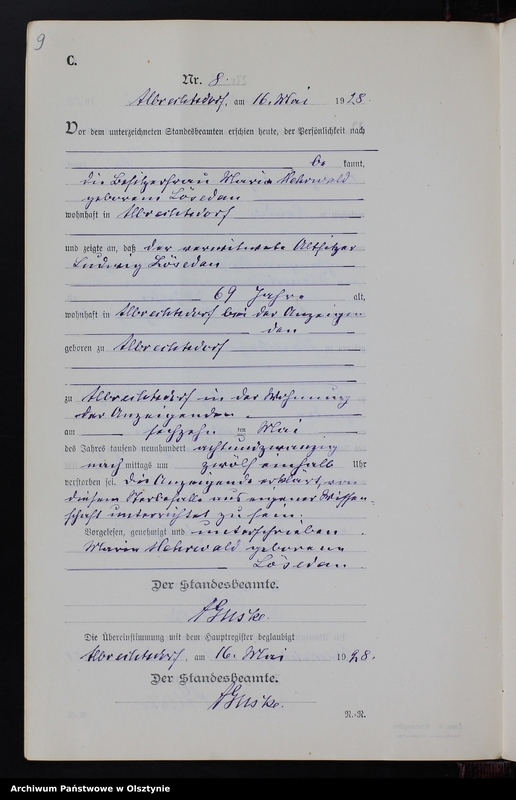 9
C.
Nr. 8.
Albrechtsdorf, am 16. Mai 1928.
Vor dem unterzeichneten Standesbeamten erschien heute, der Persönlichkeit nach
be kannt,
die Besitzerfrau Marie Hehrwald
geborene Lösedau
wohnhaft in Albrechtsdorf
und zeigte an, daß der verwitwete Altsitzer
Ludwig Lösedau
69 Jahre alt,
wohnhaft in Albrechtsdorf bei der Anzeigen
den
geboren zu Albrechtsdorf
zu Albrechtsdorf in der Wohnung
der Anzeigenden
am sechzehn ten Mai
des Jahres tausend neunhundert achtundzwanzig
nach mittags um zwölf einhalb Uhr
verstorben sei. Die Anzeigende erklärt, von
diesem Sterbefalle aus eigener Wissen-
schaft unterrichtet zu sein.
Vorgelesen, genehmigt und unterschrieben.
Marie Hehrwald geborene
Lösedau.
Der Standesbeamte.
Guske.
Die Übereinstimmung mit dem Hauptregister beglaubigt
Albrechtsdorf, am 16. Mai 1928.
Der Standesbeamte.
Guske.
N.-R.
Archiwum Państwowe w Olsztynie